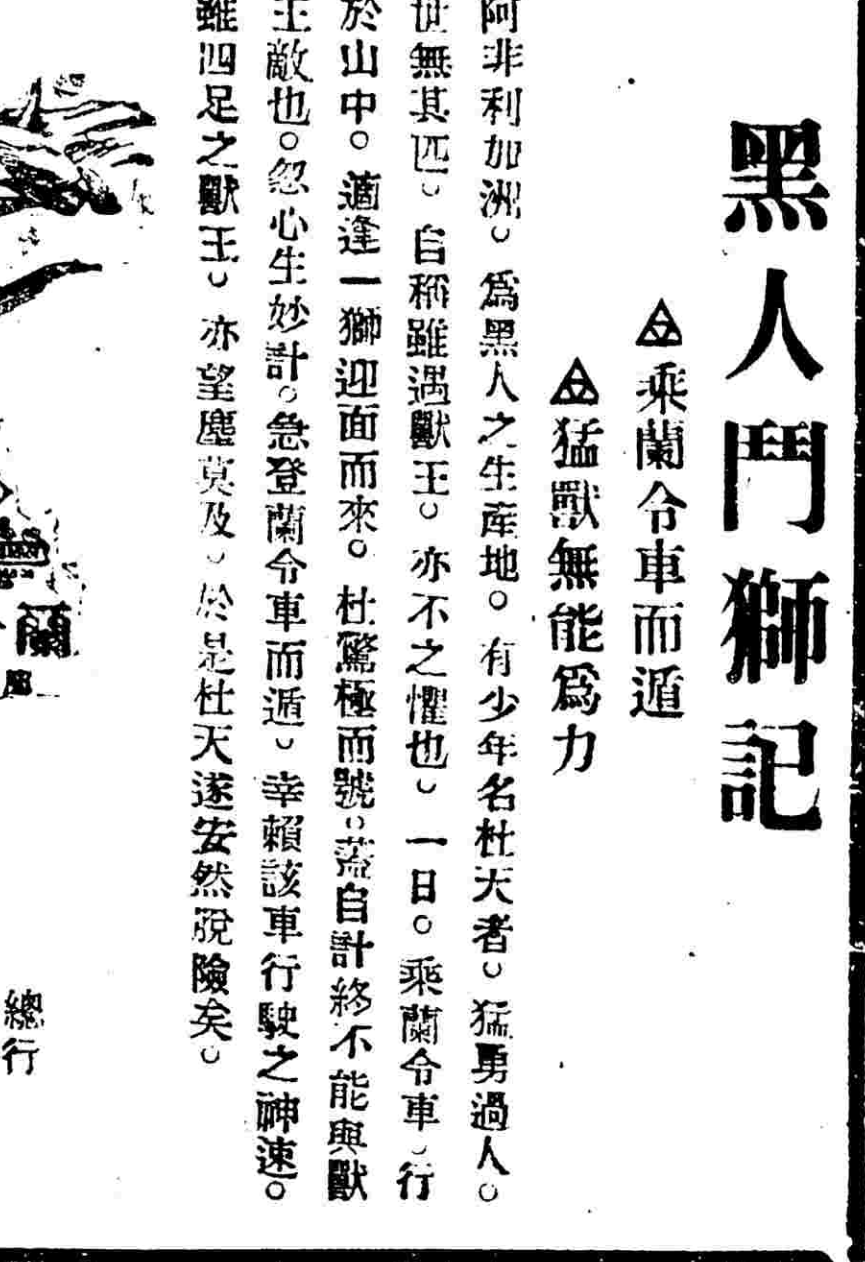 黑人鬥獅記
乘蘭令車而遁
猛獸無能爲力
阿非利加洲。爲黑人之生産地。有少年名杜天者。猛勇過人。
世無其匹。自稱雖遇獸王。亦不之懼也。一日。乘蘭令車。行
於山中。適逢一獅迎面而來。杜驚極而號。蓋自計終不能與獸
王敵也。忽心生妙計。急登蘭令車而遁。幸賴該車行駛之神速。
雖四足之獸王。亦望塵莫及。於是杜天遂安然脫險矣。
蘭
總行